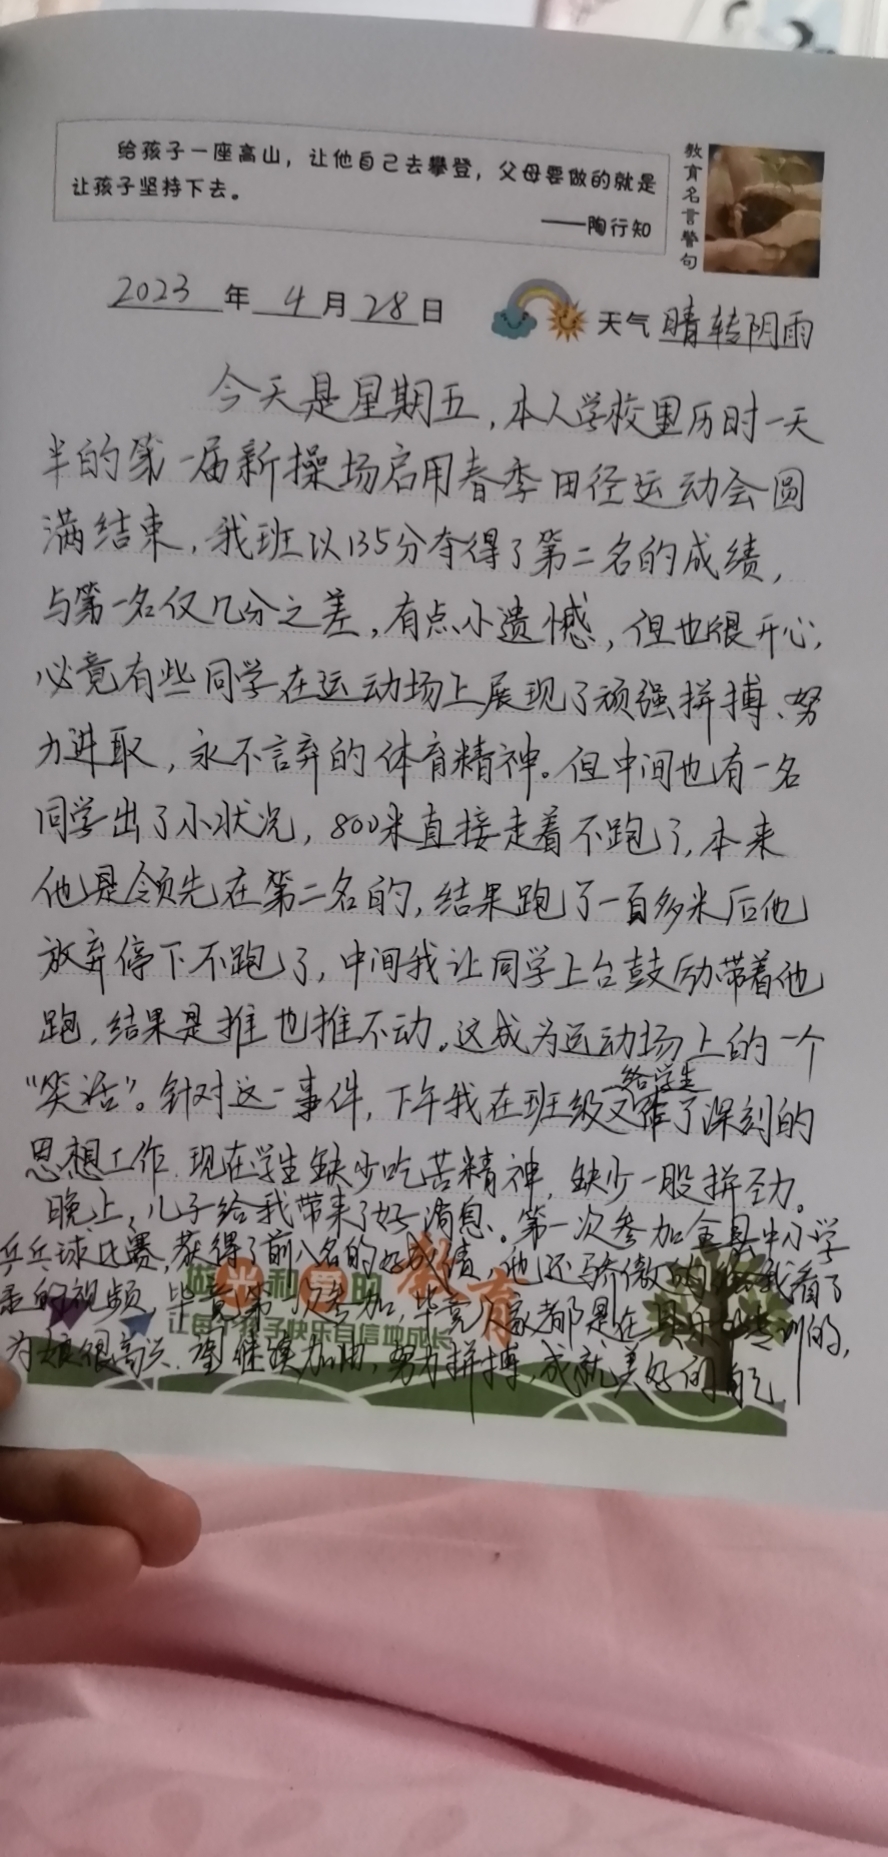 给孩子一座高山，让他自己去攀登，父母要做的就是
让孩子坚持下去。
——陶行知
教育名言警句
2023年4月28日
天气 晴转阴雨
今天是星期五，本人学校里历时一天
半的第一届新操场启用春季田径运动会圆
满结束，我班以135分夺得了第二名的成绩，
与第一名仅几分之差，有点小遗憾，但也很开心，
必竟有些同学在运动场上展现了顽强拼搏、努
力进取，永不言弃的体育精神。但中间也有一名
同学出了小状况，800米直接走着不跑了，本来
他是领先在第二名的，结果跑了一百多米后他
放弃停下不跑了，中间我让同学上台鼓励带着他
跑，结果是推也推不动。这成为运动场上的一个
“笑话”。针对这一事件，下午我在班级又给学生作了深刻的
思想工作，现在学生缺少吃苦精神，缺少一股拼劲。
晚上，儿子给我带来了好消息。第一次参加全县中小学
乒乓球比赛，获得了前八名的好成绩，他还骄傲的给我看了
录的视频，毕竟第一次参加，毕竟人家都是在专训的，
为娘很高兴，继续加油，努力拼搏，成就美好的自己！
做光和
的教育
让每个孩子快乐自信地成长